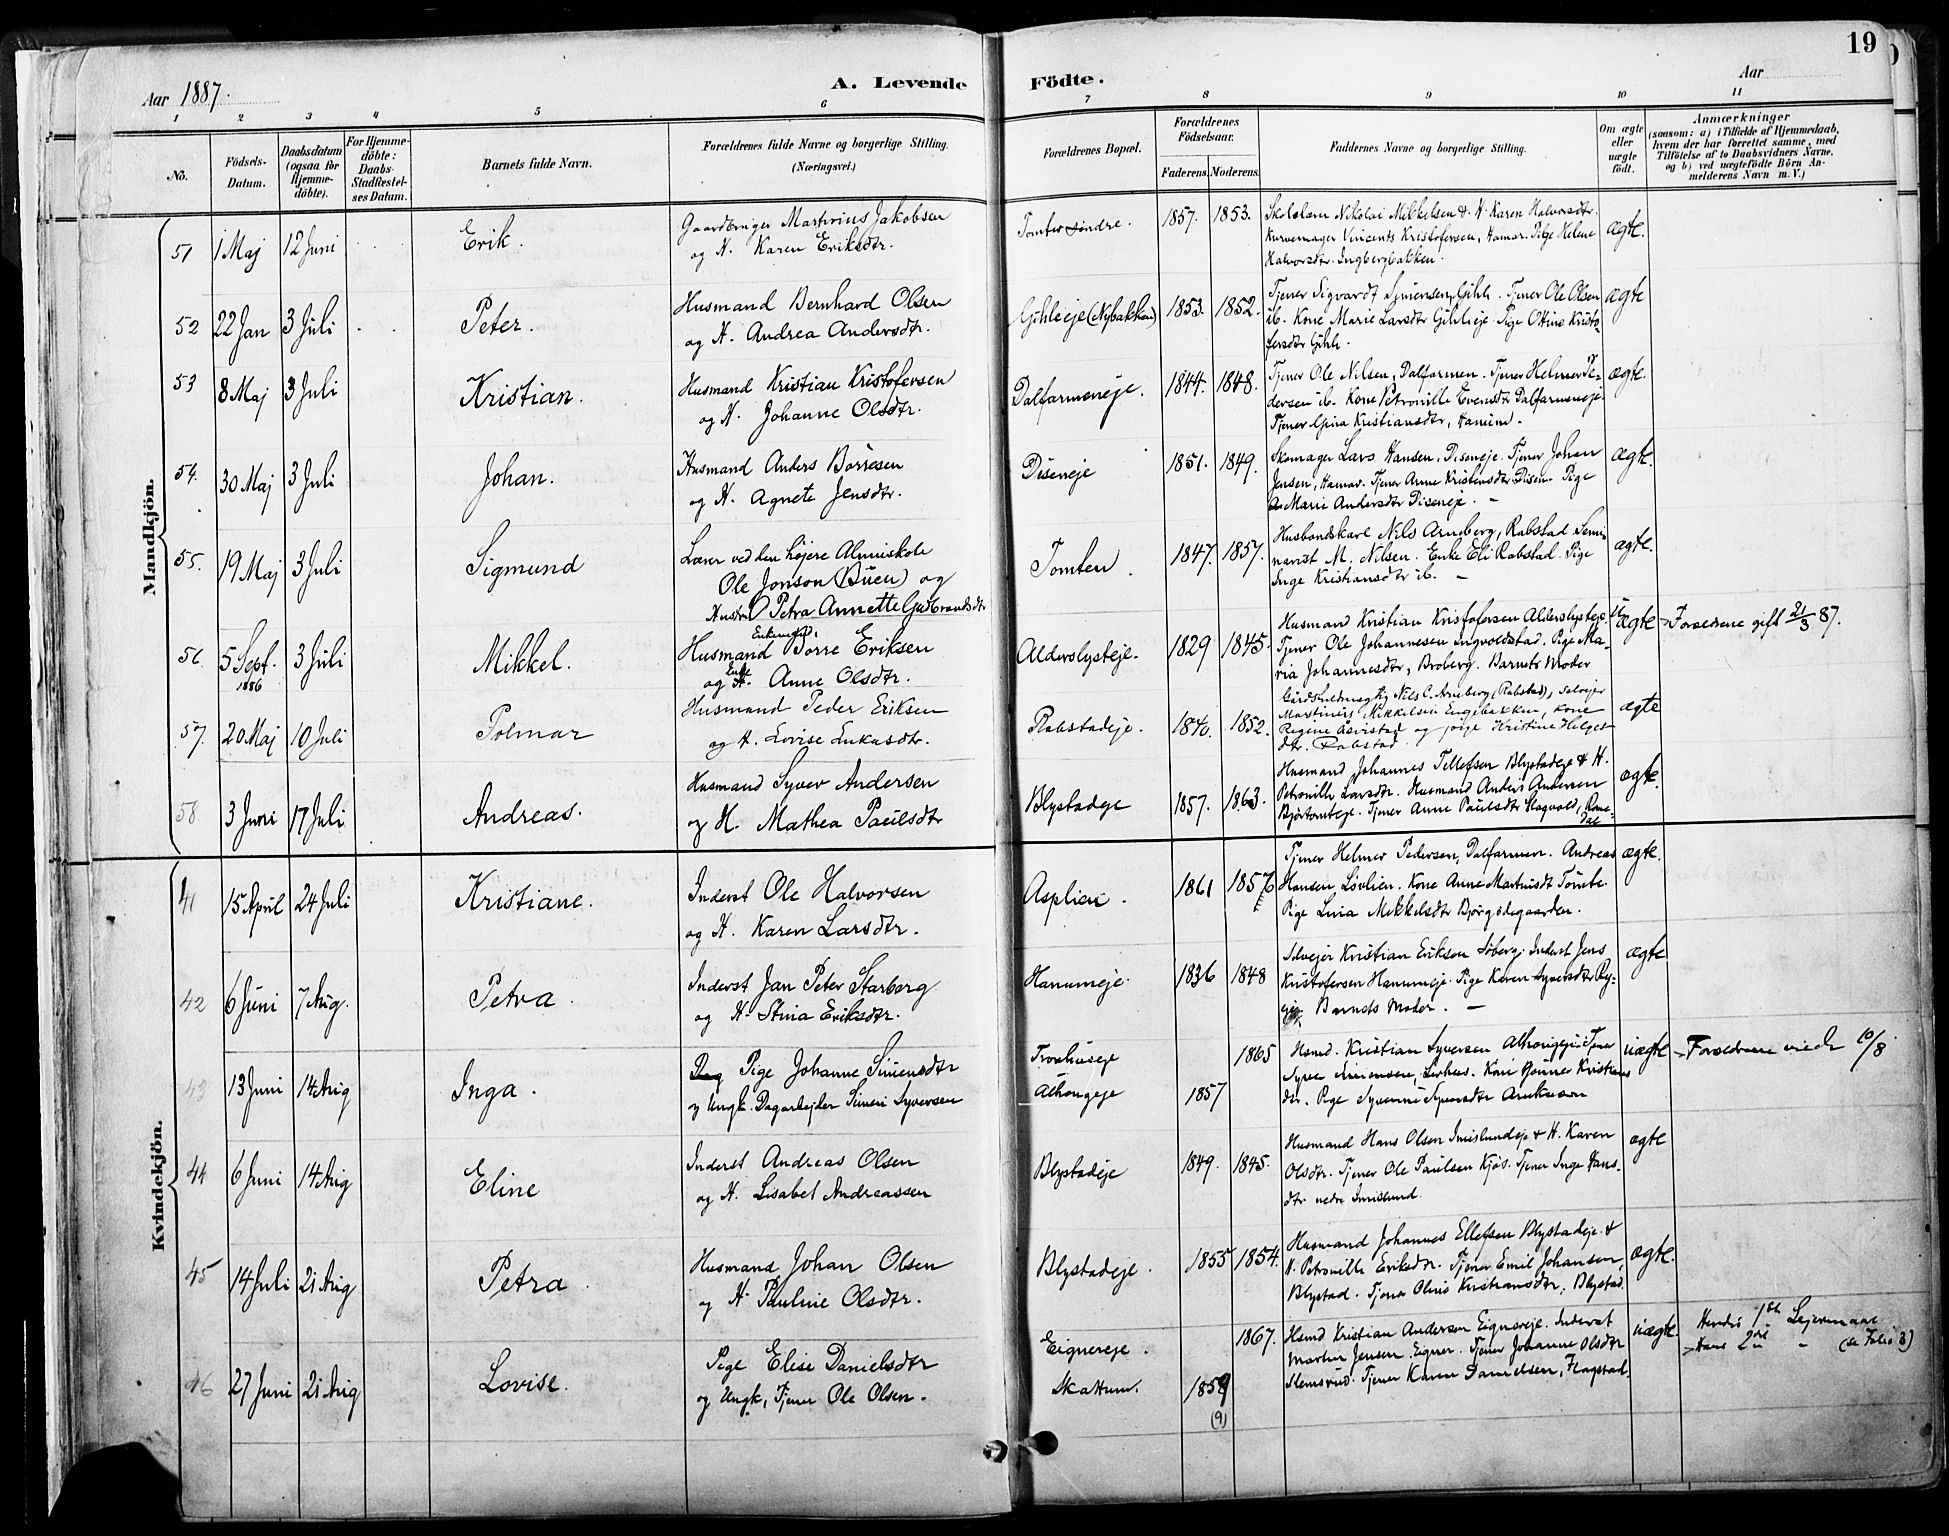 19
Aar 1887.
A. Levende Födte.
Aar
1 2 3 4 5 6 7 8 9 10 11
No.
Födsels-Datum.
Daabsdatum (ogsaa for Hjemme-döbte).
For Hjemme-döbte: Daabs-Stadfæstel-ses Datum.
Barnets fulde Navn.
Forældrenes fulde Navne og borgerlige Stilling.
(Næringsvei.)
Forældrenes Bopæl.
Forældrenes Födselsaar.
Faderens. Moderens.
Faddernes Navne og borgerlige Stilling.
Om ægte eller uægte födt.
Anmærkninger
(saasom: a) i Tilfælde af Hjemmedaab,
hvem der har forrettet samme, med
Tilföielse af to Daabsvidners Navne.
og b) ved uægtefödte Börn An-
melderens Navn m. V.)
Mandkjön.
51 1 Maj 12 Juni Erik.
Gaardbruger Martinius Jakobsen
og H. Karen Eriksdtr.
Tomter söndre. 1857. 1853.
Skolelærer Nikolai Mikkelsen & H. Karen Halvorsdtr.
Kurvemager Vincents Kristofersen, Hamar. Pige Helene
Halvorsdtr. Ingbergbakken.
ægte.
52 22 Jan 3 Juli Peter.
Husmand Bernhard Olsen
og H. Andrea Andersdtr.
Gihleeje (Nybakken) 1853. 1852.
Tjener Sigvardt Simensen, Gihle. Tjener Ole Olsen
ib. Kone Marie Larsdtr Gihleeje. Pige Ottine Kristo-
fersdtr Gihle.
ægte
53 8 Maj 3 Juli Kristian.
Husmand Kristian Kristofersen
og H. Johanne Olsdtr.
Dalfarmeneje. 1844. 1848.
Tjener Ole Nilsen, Dalfarmen. Tjener Helmer Pe-
dersen ib. Kone Petronille Evensdtr Dalfarmeneje.
Tjener Gina Kristiansdtr, Hanum.
ægte.
54. 30 Maj 3 Juli Johan.
Husmand Anders Börresen
og H. Agnete Jensdtr.
Diseneje 1851. 1849.
Skomager Lars Hansen, Diseneje. Tjener Johan
Jensen, Hamar. Tjener Anne Kristensdtr Disen. Pige
Marie Andersdtr Diseneje.
ægte.
55. 19 Maj 3 Juli Sigmund
Lærer ved den højere Almuskole
Ole Jonson (Buen) og
Hustru Petra Annette Gudbrandsdtr
Tomten. 1847. 1857.
Husbondskarl Nils Arneberg, Rabstad. Semi-
narist M. Nilsen. Enke Eli Rabstad. Pige
Inge Kristiansdtr ib.
ægte.
56. 5 Sept. 1886 3 Juli Mikkel.
Enkemd.
Husmand Börre Eriksen
og Enke Anne Olsdtr.
Alderslysteje. 1829 1845.
Husmand Kristian Kristofersen Alderslysteje.
Tjener Ole Johannesen Ingvoldstad. Pige Ma-
ria Johannesdtr, Broberg. Barnets Moder
uægte
Forældrene gift 21/3 87.
57. 20 Maj 10 Juli Polmar
Husmand Peder Eriksen
og H. Lovise Lukasdtr.
Rabstadeje. 1840. 1852.
Nils C. Arneberg (Rabstad), Selvejer
Martinius Mikkelsen Engebakken, kone
Regine og pige Kristine Helges-
dtr. Rabstad
ægte
58 3 Juni 17 Juli Andreas.
Husmand Syver Andersen
og H. Mathea Paulsdtr
Blystadeje 1857. 1863.
Husmand Johannes Tellefsen Blystadeje & H.
Petronille Larsdtr. Husmand Anders Andersen
Björtomteje. Tjener Anne Paulsdtr Slagvold,
ægte.
Kvindekjön.
41 15 April 24 Juli Kristiane.
Inderst Ole Halvorsen
og H. Karen Larsdtr.
Asplien. 1861 1857
Tjener Helmer Pedersen, Dalfarmen. Andreas
Hansen Lövlien. Kone Anne Martinsdt Tomte.
Pige Lina Mikkelsdtr Björgödegaarden.
ægte.
42 6 Juni 7 Aug. Petra
Inderst Jan Peter Starberg
og H. Stina Eriksdtr.
Hanumeje. 1836 1848
Selvejer Kristian Eriksen Söberg. Inderst Jens
Kristofersen Hanumeje. Pige Karen Syversdtr
Barnets Moder.
ægte
43 13 Juni 14 Aug Inga.
Pige Johanne Simensdtr
og Ungk. Dagarbejder Simen Syversen
Alhaugeje 1857 1865
Hsmd. Kristian Syversen Alhaugeje. Tjener
Syver Simensen,
dtr. Pige Syverine Syversdtr
uægte
Forældrene viede 10/8
44 6 Juni 14 Aug Eline
Inderst Andreas Olsen
og H. Lisabet Andreassen
Blystadeje 1849. 1845.
Husmand Hans Olsen Imislundeje & H. Karen
Olsdtr. Tjener Ole Paulsen Kjös. Tjener Inge Hans-
dtr nedre Imislund.
ægte
45 14 Juli 21 Aug Petra
Husmand Johan Olsen
og H. Pauline Olsdtr.
Blystadeje. 1855 1854.
Husmand Johannes Ellefsen Blystadeje &
H. Petronille Eriksdtr. Tjener Emil Johansen,
Blystad. Tjener Oline Kristiansdtr, Blystad.
ægte.
46 27 Juni 21 Aug Lovise.
Pige Elise Danielsdtr
og Ungk, Tjener Ole Olsen.
Eignereje.
Skattum. 1859 (9) 1867.
Hsmd Kristian Andersen Eignereje. Inderst
Martin Jensen Eigner. Tjener Johanne Olsdtr
Slemsrud. Tjener Karen Danielsen, Flagstad.
uægte
Hendes 1ste Lejermaal
Hans 2det " (se Folio 3)